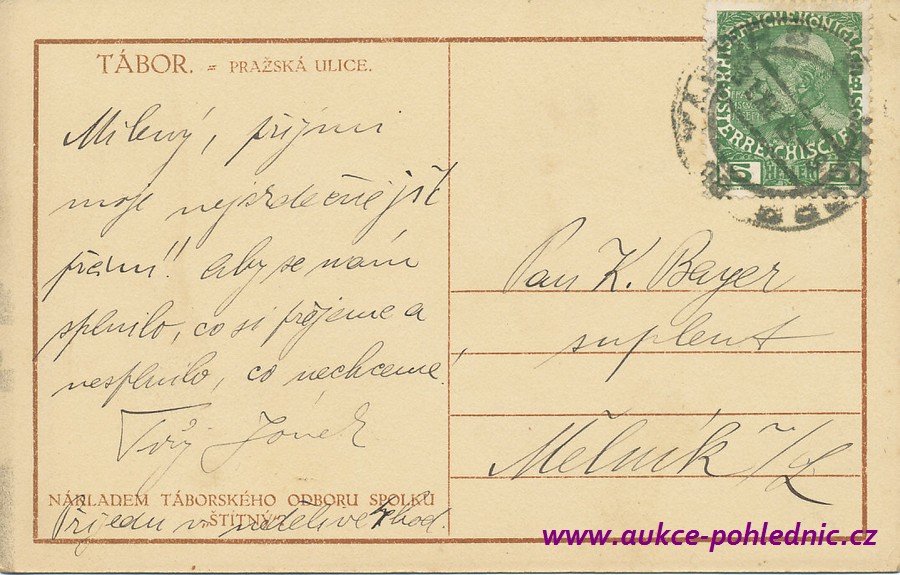 TÁBOR. = PRAŽSKÁ ULICE.
Milený, přijmi
moje nejsrdečnější
přání!! aby se nám
splnilo, co si přejeme a
nesplnilo, co nechceme.
Tvůj
Přijedu v neděli ve 4 hod.
NÁKLADEM TÁBORSKÉHO ODBORU SPOLKU
„ŠTÍTNÝ“
Pan K. Bayer
suplent
Mělník n/L
5 HELLER 5
www.aukce-pohlednic.cz